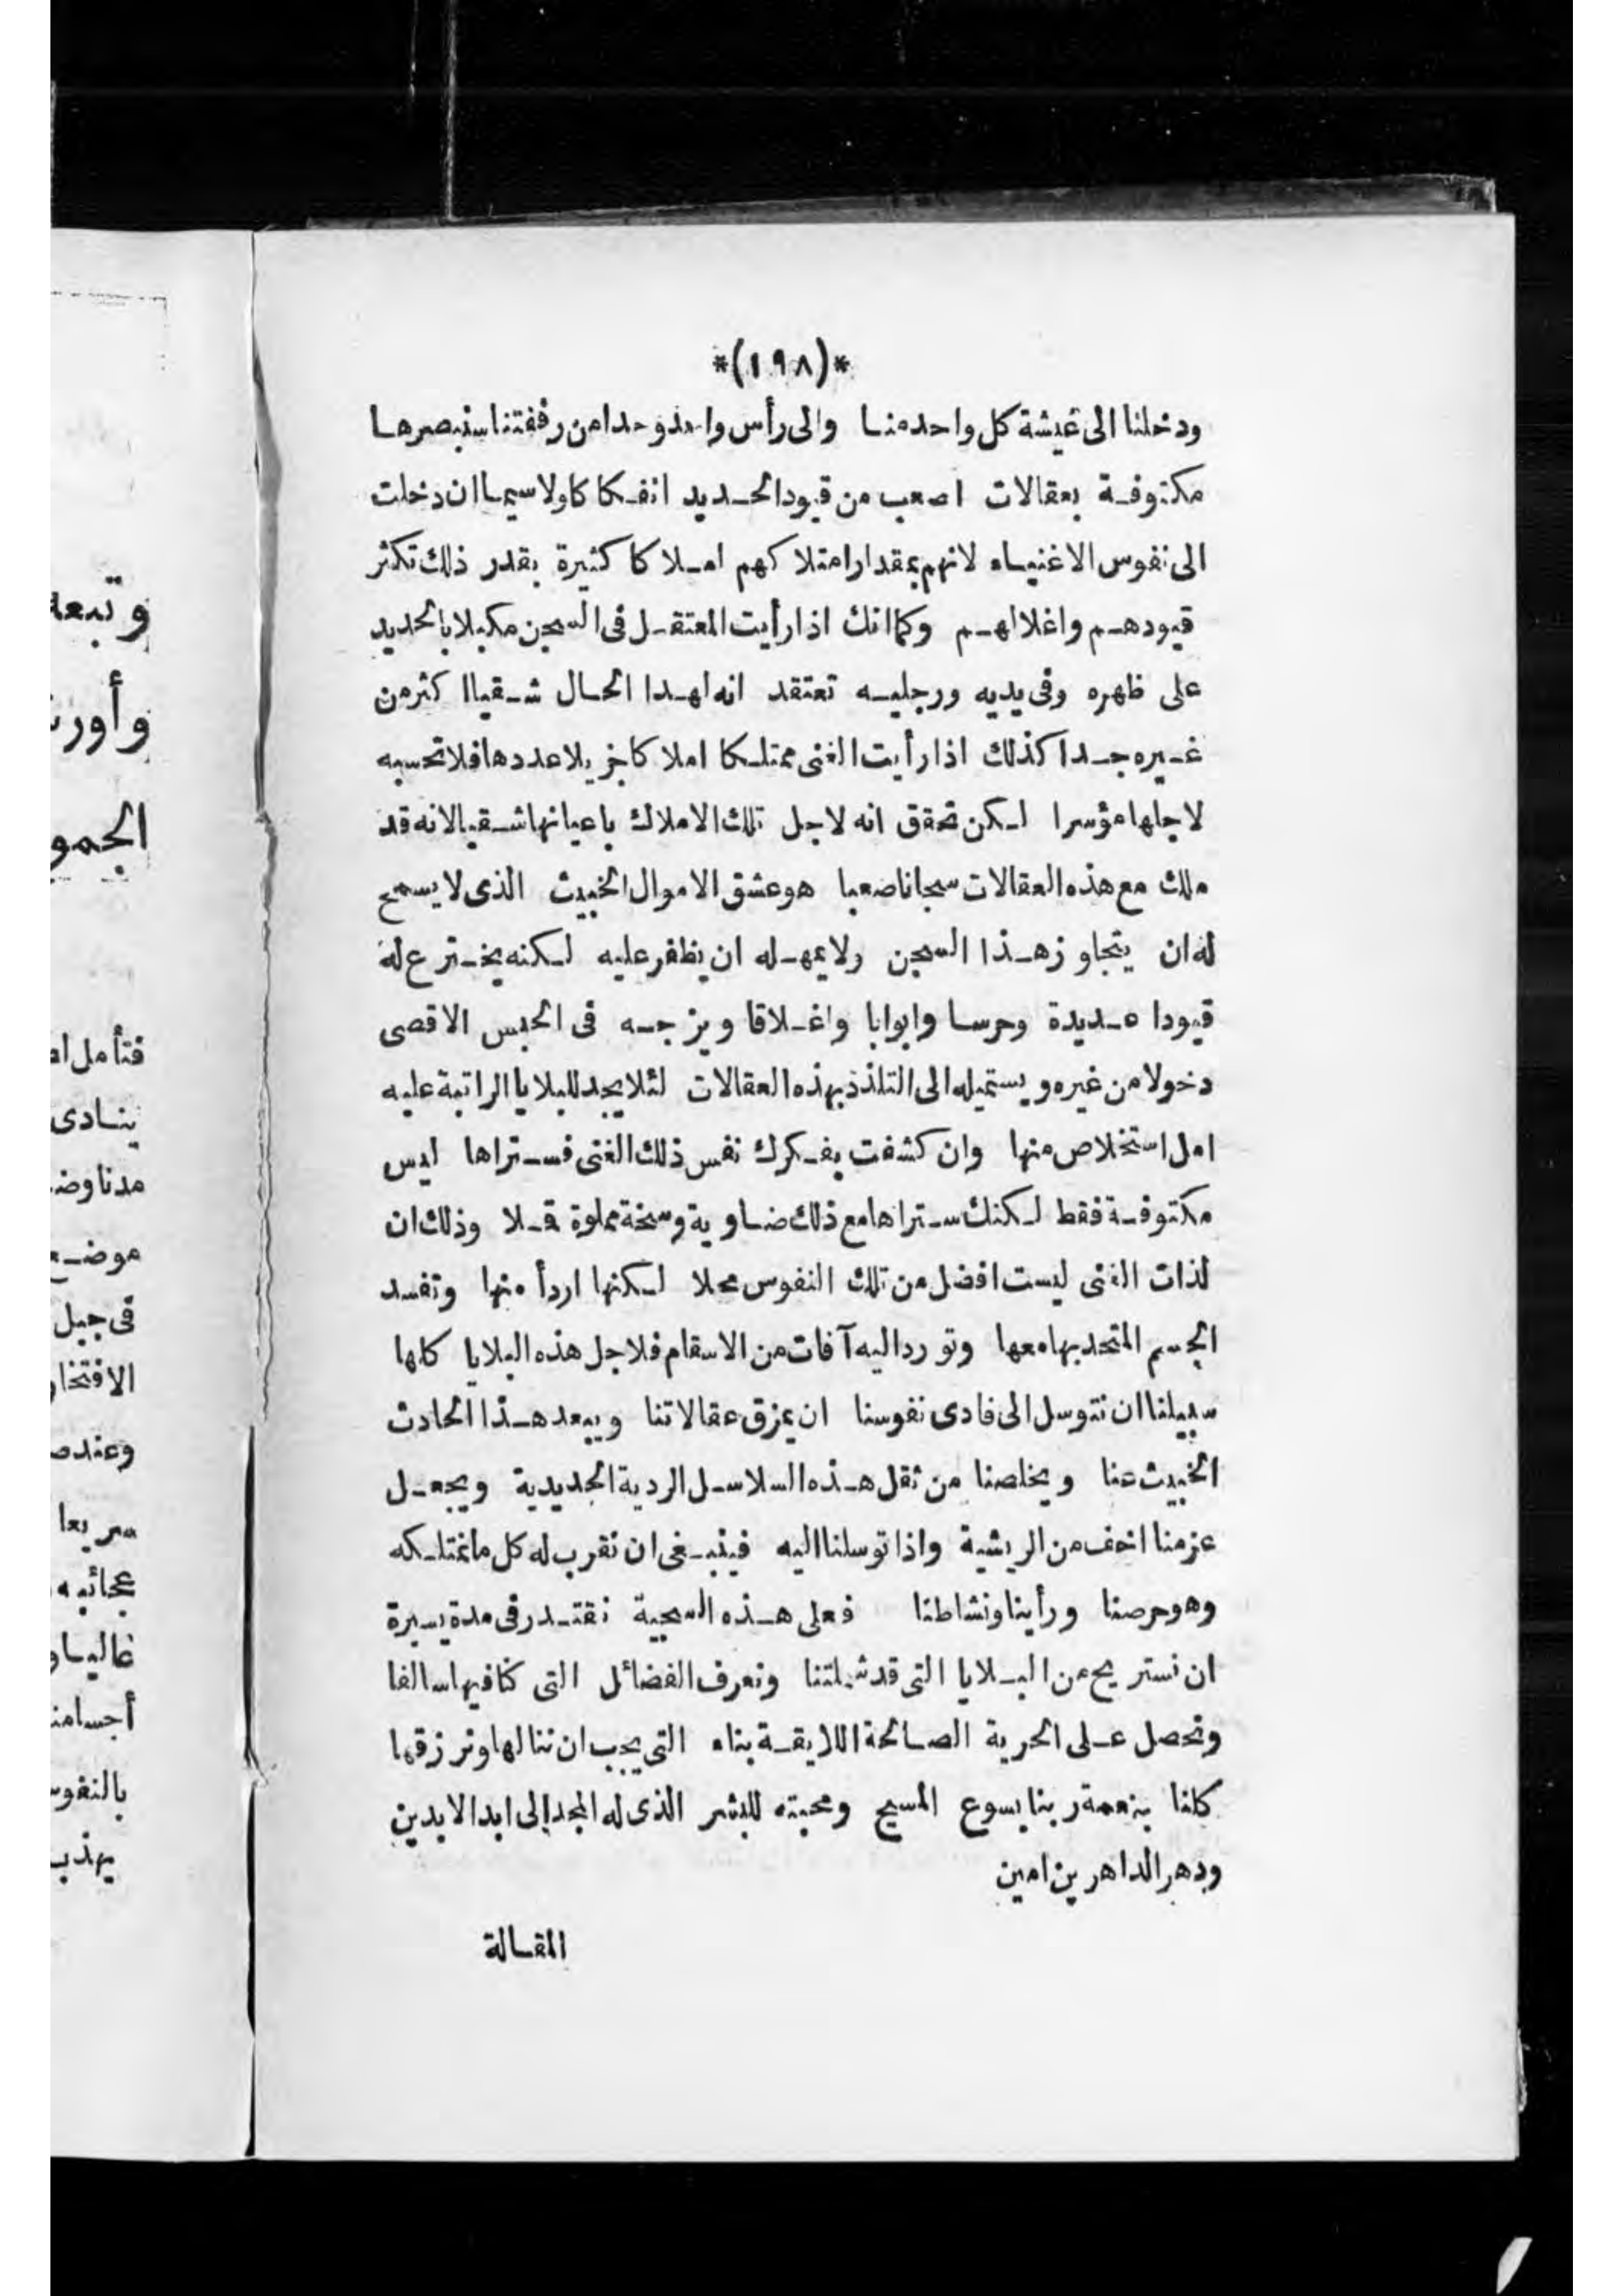 *(١٩٨)*
ودخلنا الى عيشة كل واحد منا والى رأس واحد وحدا من رفقتنا سنبصرها
مكتوفة بعقالات اصعب من قيود الحديد انفكاكا ولا سيما ان دخلت
الى نفوس الاغنياء لانهم بمقدار امتلاكهم املاكا كثيرة بقدر ذلك تكثر
قيودهم واغلالهم وكما انك اذا رأيت المعتقل فى السجن مكبلا بالحديد
على ظهره وفى يديه ورجليه تعتقد انه لهذا الحال شقيا اكثر من
غيره جدا كذلك اذا رأيت الغنى ممتلكا املاكا جزيلا عددها فلا تحسبه
لاجلها مؤسرا لكن تحقق انه لاجل تلك الاملاك باعيانها شقيا لانه قد
ملك مع هذه العقالات سجانا صعبا هو عشق الاموال الخبيث الذى لا يسمح
له ان يتجاوز هذا السجن ولا يمهله ان يظفر عليه لكنه يخترع له
قيودا جديدة وحرسا وابوابا واغلاقا ويزجه فى الحبس الاقصى
دخولا من غيره ويستميله الى التلذذ بهذه العقالات لئلا يجد للبلايا الراتبة عليه
امل استخلاص منها وان كشفت بفكرك نفس ذلك الغنى فستراها ليس
مكتوفة فقط لكنك ستراها مع ذلك ضاوية وسخة مملوة قملا وذلك ان
لذات الغنى ليست افضل من تلك النفوس محلا لكنها اردأ منها وتفسد
الجسم المتحد بها معها وتورد اليه آفات من الاسقام فلاجل هذه البلايا كلها
سبيلنا ان نتوسل الى فادى نفوسنا ان يمزق عقالاتنا ويبعد هذا الحادث
الخبيث عنا ويخلصنا من ثقل هذه السلاسل الردية الحديدية ويجعل
عزمنا اخف من الريشية واذا توسلنا اليه فينبغى ان نقرب له كل ما نمتلكه
وهو حرصنا ورأينا ونشاطنا فعلى هذه السجية نقتدر فى مدة يسيرة
ان نستريح من البلايا التى قد شملتنا ونعرف الفضائل التى كنا فيها سالفا
ونحصل على الحرية الصالحة اللايقة بناء التى يجب ان ننالها ونرزقها
كلنا بنعمة ربنا يسوع المسيح ومحبته للبشر الذى له المجد إلى ابد الابدين
ودهر الداهرين امين
المقالة
وتبعه
الجمو
فتأمل
ينادى
مدنا
فى جبل
سريعا
عجائبه
يهذب